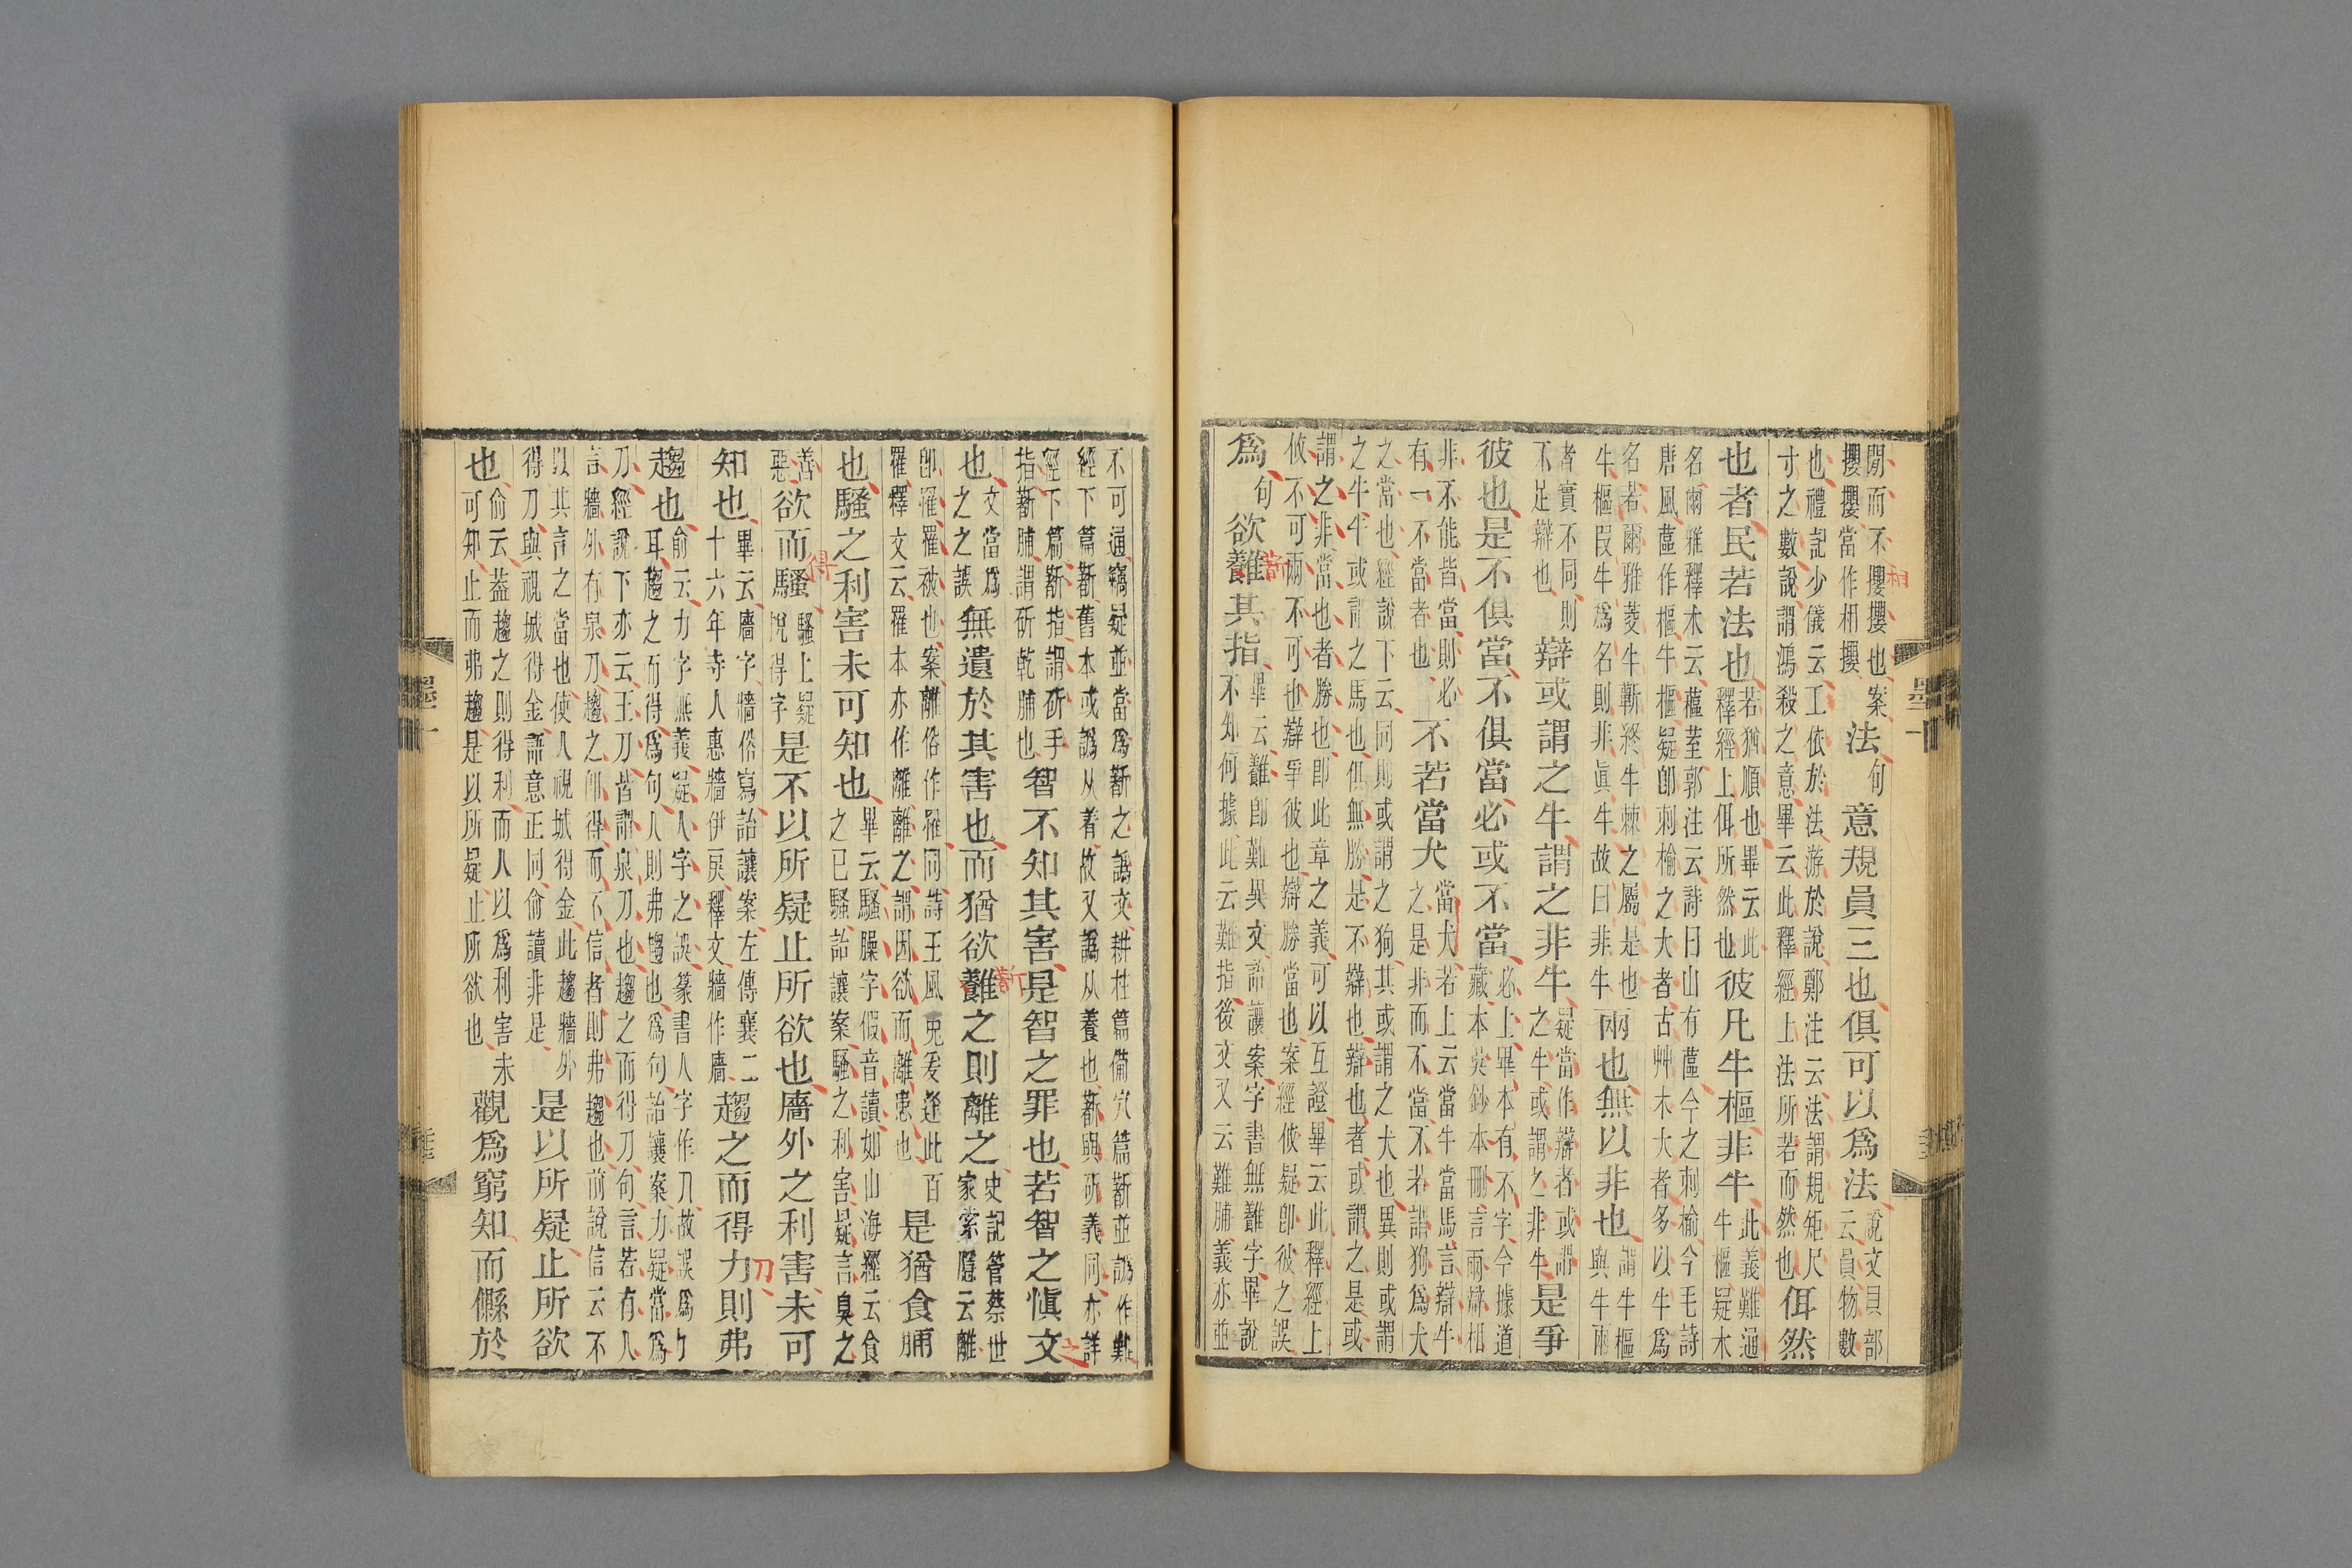 閒而不攖攖也案攖攖當作相攖法句意規員三也俱可以爲法說文貝部云員物數
也禮記少儀云工依於法游於說鄭注云法謂規矩尺寸之數說謂鴻殺之意畢云此釋經上法所若而然也佴然
也者民若法也若猶順也畢云此釋經上佴所然也彼凡牛樞非牛此義難通牛樞疑木
名爾雅釋木云藲荎郭注云詩曰山有藲今之刺榆今毛詩唐風藲作樞牛樞疑卽刺榆之大者古艸木大者多以牛爲
名若爾雅菱牛蘄終牛棘之屬是也牛樞叚牛爲名則非眞牛故曰非牛兩也無以非也謂牛樞與牛兩
者實不同則不足辯也辯或謂之牛謂之非牛疑當作辯者或謂之牛或謂之非牛是爭
彼也是不俱當不俱當必或不當必上畢本有不字今據道藏本吳鈔本刪言兩辯相
非不能皆當則必有一不當者也不若當犬當犬若上云當牛當馬言辯牛之是非而不當不若謂狗爲犬
之當也經說下云同則或謂之狗其或謂之犬也異則或謂之牛牛或謂之馬也俱無勝是不辯也辯也者或謂之是或
謂之非當也者勝也卽此章之義可以互證畢云此釋經上攸不可兩不可也辯爭彼也辯勝當也案經攸疑卽彼之誤
爲句欲難其指畢云難卽難異文詒讓案字書無難字畢說不知何據此云難指後文又云難脯義亦並
不可通竊疑並當爲𣃁之譌文耕柱篇備穴篇𣃁並譌作難經下篇𣃁舊本或譌从着故又譌从養也𣃁與斫義同亦詳
經下篇𣃁指謂斫手指𣃁脯謂斫乾脯也智不知其害是智之罪也若智之愼文
也文當爲之之誤無遺於其害也而猶欲難之則離之史記管蔡世家索隱云離
卽罹罹被也案離俗作罹同詩王風兔爰逢此百罹釋文云罹本亦作離離之謂因欲而離患也是猶食脯
也騷之利害未可知也畢云騷臊字假音讀如山海經云食之已騷詒讓案騷之利害疑言臭之
善惡欲而騷騷上疑脫得字是不以所疑止所欲也廧外之利害未可
知也畢云廧字牆俗寫詒讓案左傳襄二十六年寺人惠牆伊戾釋文牆作廧趨之而得力則弗
趨也俞云力字無義疑人字之誤篆書人字作刀故誤爲力耳趨之而得爲句人則弗趨也爲句詒讓案力疑當爲
刀經說下亦云王刀皆謂泉刀也趨之而得刀句言若有人言牆外有泉刀趨之卽得而不信者則弗趨也前說信云不
以其言之當也使人視城得金此趨牆外得刀與視城得金語意正同俞讀非是是以所疑止所欲
也俞云蓋趨之則得利而人以爲利害未可知止而弗趨是以所疑止所欲也觀爲窮知而縣於